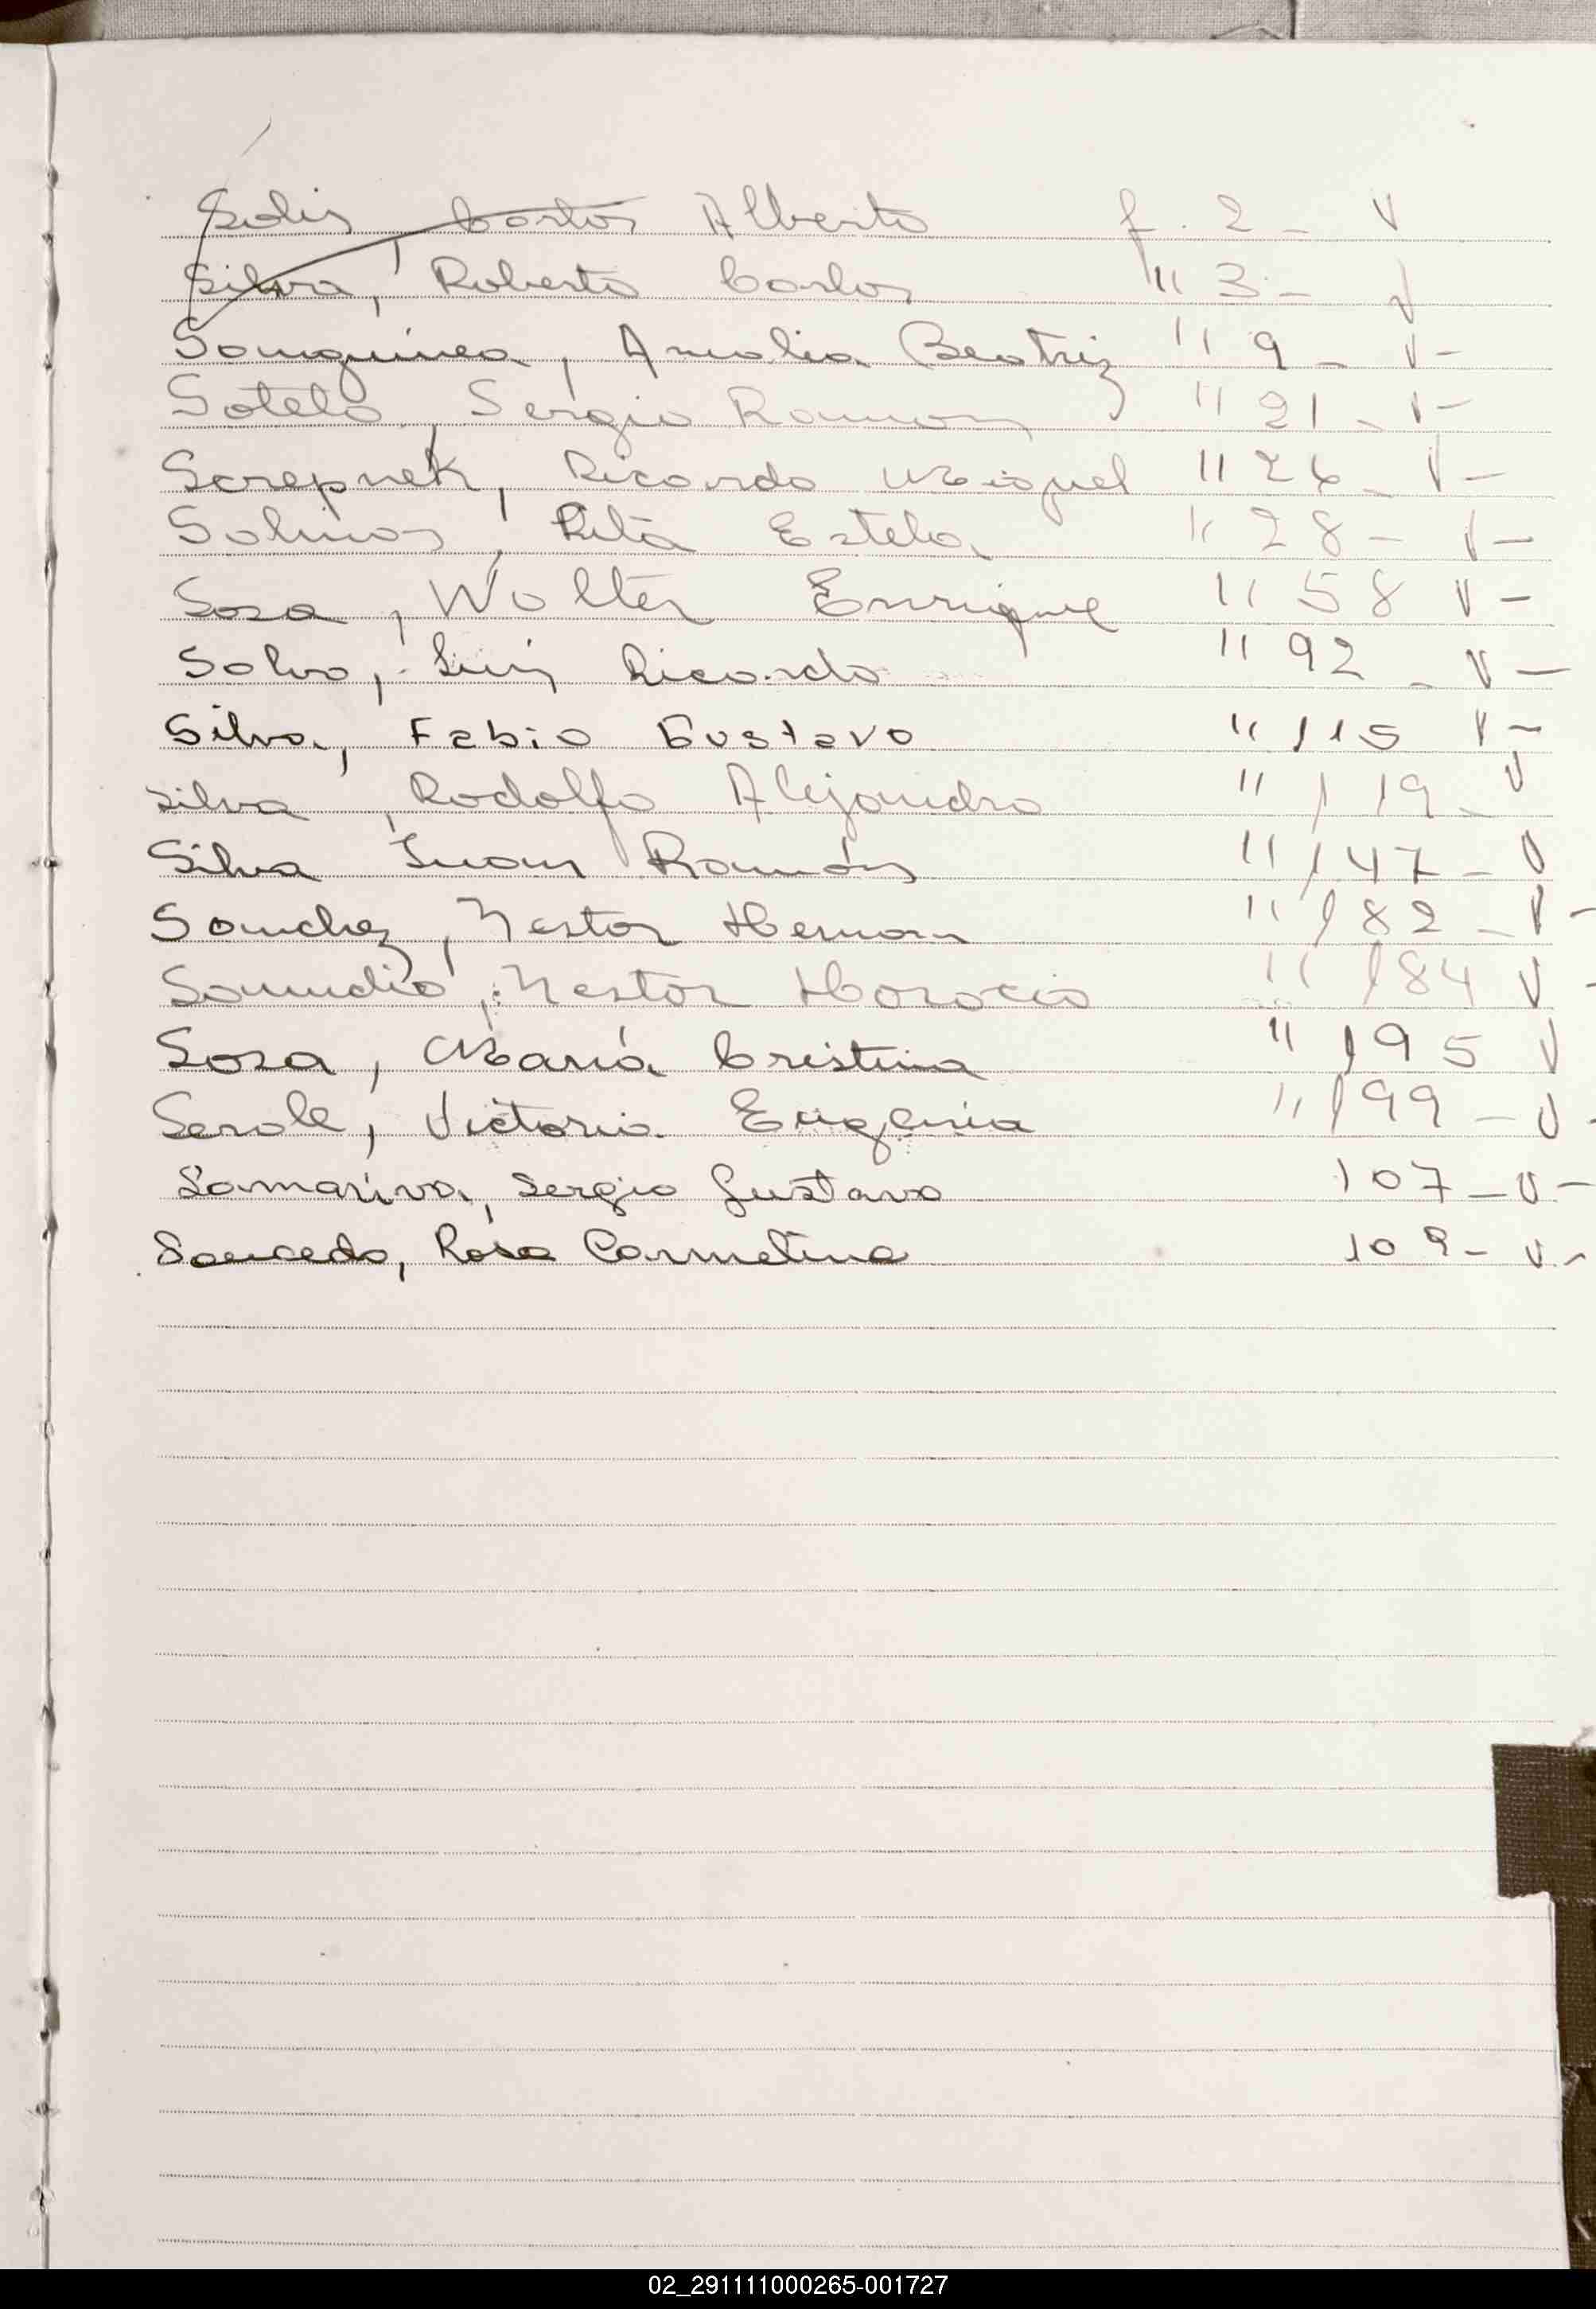 Solis, Carlos Alberto f. 2 - V
Silva, Roberto Carlos " 3 - V
Sanguinea, Amalia Beatriz " 9 - V -
Sotelo, Sergio Ramon " 21 - V -
Screpnek, Ricardo Miguel " 26 - V -
Salinas, Rita Estela " 28 - V -
Sosa, Walter Enrique " 58 V -
Salvo, Luis Ricardo " 92 - V -
Silva, Fabio Gustavo " 115 V -
Silva, Rodolfo Alejandro " 119 - V
Silva Juan Ramón " 147 - V
Sanchez, Nestor Hernan " 182 - V -
Samudio, Nestor Horacio " 184 V -
Sosa, María Cristina " 195 V
Serale, Victoria Eugenia " 199 - V -
Samariva, Sergio Gustavo 107 - V -
Saucedo, Rosa Carmelina 109 - V -
02_291111000265-001727